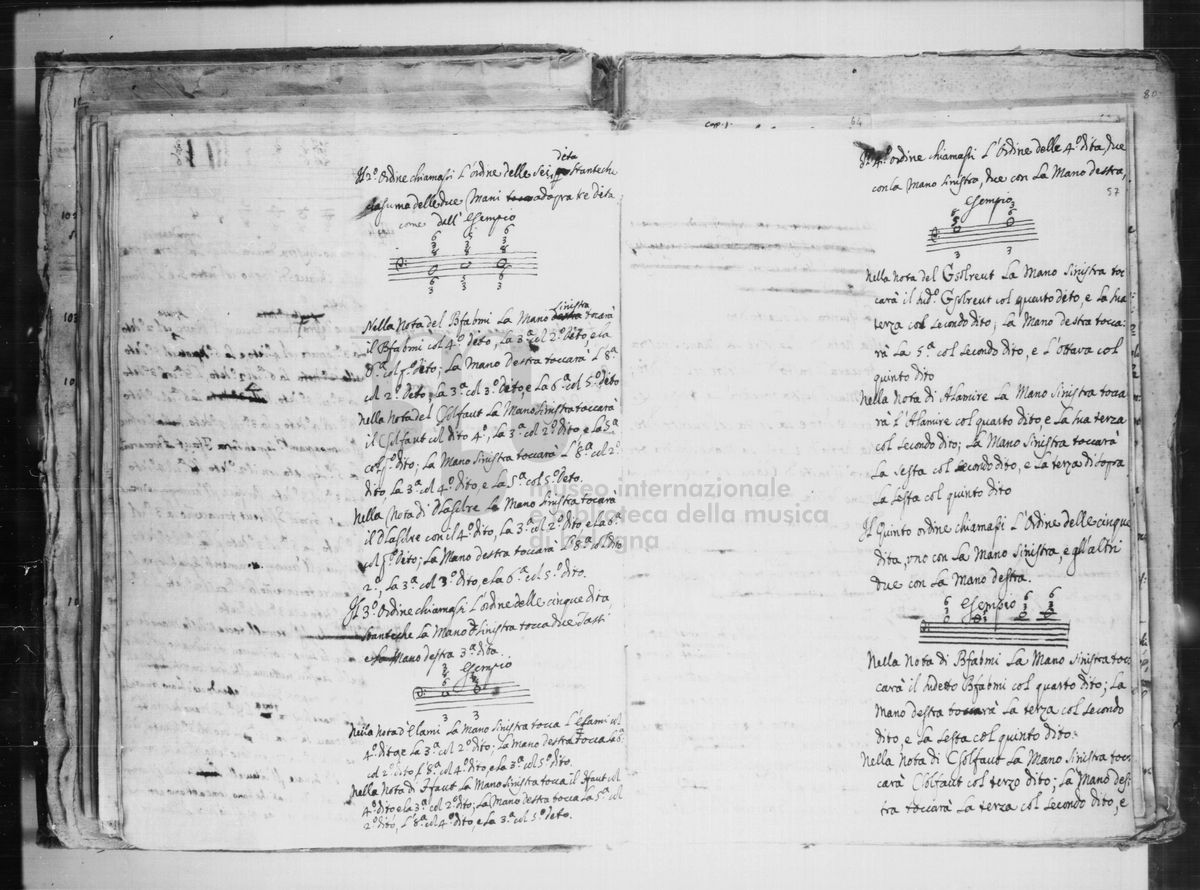 dita
Il 2º. Ordine chiamasi L'ordine delle sei, stanteche
ciasuna delle due Mani adopra tre dita
come dall' Esempio
6 5 6
3 3 3
8 8 8
3 5 6
6 3 3
Sinistra
Nella Nota del Bfabmi La Mano destra tocarà
il Bfabmi col 4º. Deto, La 3ª. col 2º. Deto, e la
8ª. col pº. Deto; La Mano Destra toccarà L'8ª.
col 2º. Deto, La 3ª. col 3º. Deto, e La 6ª. col 5º. Deto
Nella Nota del Csolfaut La Mano Sinistra toccarà
il Csolfaut col dito 4º., La 3ª. col 2º. Dito e La 5ª.
col pº. Dito; La Mano Sinistra toccarà L'8ª. col 2º.
Dito, La 3ª. col 4º. Dito, e La 5ª. col 5º. Deto.
Nella Nota di Dlasolre La Mano Sinistra tocarà
il Dlasolre con il 4º. Dito, La 3ª. col 2º. Dito, e La 6ª.
col pº. Deto; La Mano destra toccarà L'8ª. col Dito
2º., La 3ª. col 3º. Dito, e La 6ª. col 5º. Dito.
Il 3º. Ordine chiamasi L'ordine delle cinque dita
Stanteche La Mano Sinistra tocca due Tasti
e La Mano destra 3ª. dita.
Esempio
3
8
6
3 3
Nella Nota d'Elami La Mano Sinistra tocca L'Elami col
4º. dito, e La 3ª. col 2º. Dito; La Mano destra tocca La 6ª.
col 2º. Dito L'8ª. col 4º. Dito, e La 3ª. col 5º. Dito.
Nella Nota di Ffaut La Mano Sinistra tocca il Ffaut col
4º. dito e La 3ª. col 2º. Dito; La Mano destra tocca La 5ª. col
2º. Dito, L'8ª. col 4º. Dito, e La 3ª. col 5º. Dito.
80
Cap. 1.
64
57
Il 4º. ordine chiamasi L'Ordine delle 4º. dita, due
con La Mano Sinistra, due con La Mano destra,
Esempio
8 3
5 6
3 3
Nella Nota del Gsolreut La Mano Sinistra toc
carà il sudº. Gsolreut col quarto deto, e La sua
terza col secondo dito; La Mano destra tocca:
rà La 5ª. col secondo dito, e L'ottava col
quinto dito
Nella Nota di Alamire La Mano Sinistra toca
rà l'Alamire col quarto dito, e La sua terza
col secondo dito; La Mano Sinistra toccarà
La sesta col secondo dito, e La terza di sopra
La sesta col quinto dito
Il Quinto ordine chiamasi L'Ordine delle cinque
dita, vno con La Mano Sinistra, e gl'altri
due con La Mano destra.
Esempio
6 6 6 6
3 3 3 3
Nella Nota di Bfabmi La Mano Sinistra toc
carà il sudetto Bfabmi col quarto dito; La
Mano destra toccarà La terza col secondo
dito, e La sesta col quinto dito:
Nella Nota di Csolfaut La Mano Sinistra toc:
carà Csolfaut col terzo dito; La Mano des:
tra toccarà La terza col secondo dito, e
museo internazionale
e biblioteca della musica
di bologna